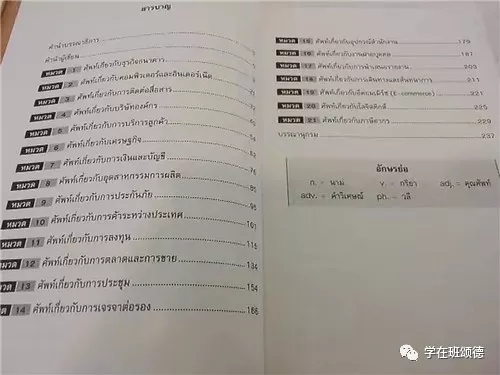 สารบาญ
คำนำบรรณาธิการ
คำนำผู้เขียน
หมวด 1 ศัพท์เกี่ยวกับธุรกิจธนาคาร
หมวด 2 ศัพท์เกี่ยวกับคอมพิวเตอร์และอินเตอร์เน็ต
หมวด 3 ศัพท์เกี่ยวกับการติดต่อสื่อสาร
หมวด 4 ศัพท์เกี่ยวกับบริษัทองค์กร
หมวด 5 ศัพท์เกี่ยวกับการบริการลูกค้า
หมวด 6 ศัพท์เกี่ยวกับเศรษฐกิจ
หมวด 7 ศัพท์เกี่ยวกับการเงินและบัญชี
หมวด 8 ศัพท์เกี่ยวกับอุตสาหกรรมการผลิต
หมวด 9 ศัพท์เกี่ยวกับการประกันภัย
หมวด 10 ศัพท์เกี่ยวกับการค้าระหว่างประเทศ 101
หมวด 11 ศัพท์เกี่ยวกับการลงทุน
หมวด 12 ศัพท์เกี่ยวกับการตลาดและการขาย 134
หมวด 13 ศัพท์เกี่ยวกับการประชุม 154
หมวด 14 ศัพท์เกี่ยวกับการเจรจาต่อรอง 166
หมวด 15 ศัพท์เกี่ยวกับอุปกรณ์สำนักงาน 179
หมวด 16 ศัพท์เกี่ยวกับงานฝ่ายบุคคล
หมวด 17 ศัพท์เกี่ยวกับการนำเสนอรายงาน 203
หมวด 18 ศัพท์เกี่ยวกับการเดินทางและสันทนาการ 211
หมวด 19 ศัพท์เกี่ยวกับอีคอมเมิร์ซ (E-commerce) 221
หมวด 20 ศัพท์เกี่ยวกับโลจิสติกส์ 225
หมวด 21 ศัพท์เกี่ยวกับภาษีอากร 229
บรรณานุกรม 237
อักษรย่อ
n. = นาม v. = กริยา adj. = คุณศัพท์
adv. = คำวิเศษณ์ ph. = วลี
学在班颂德